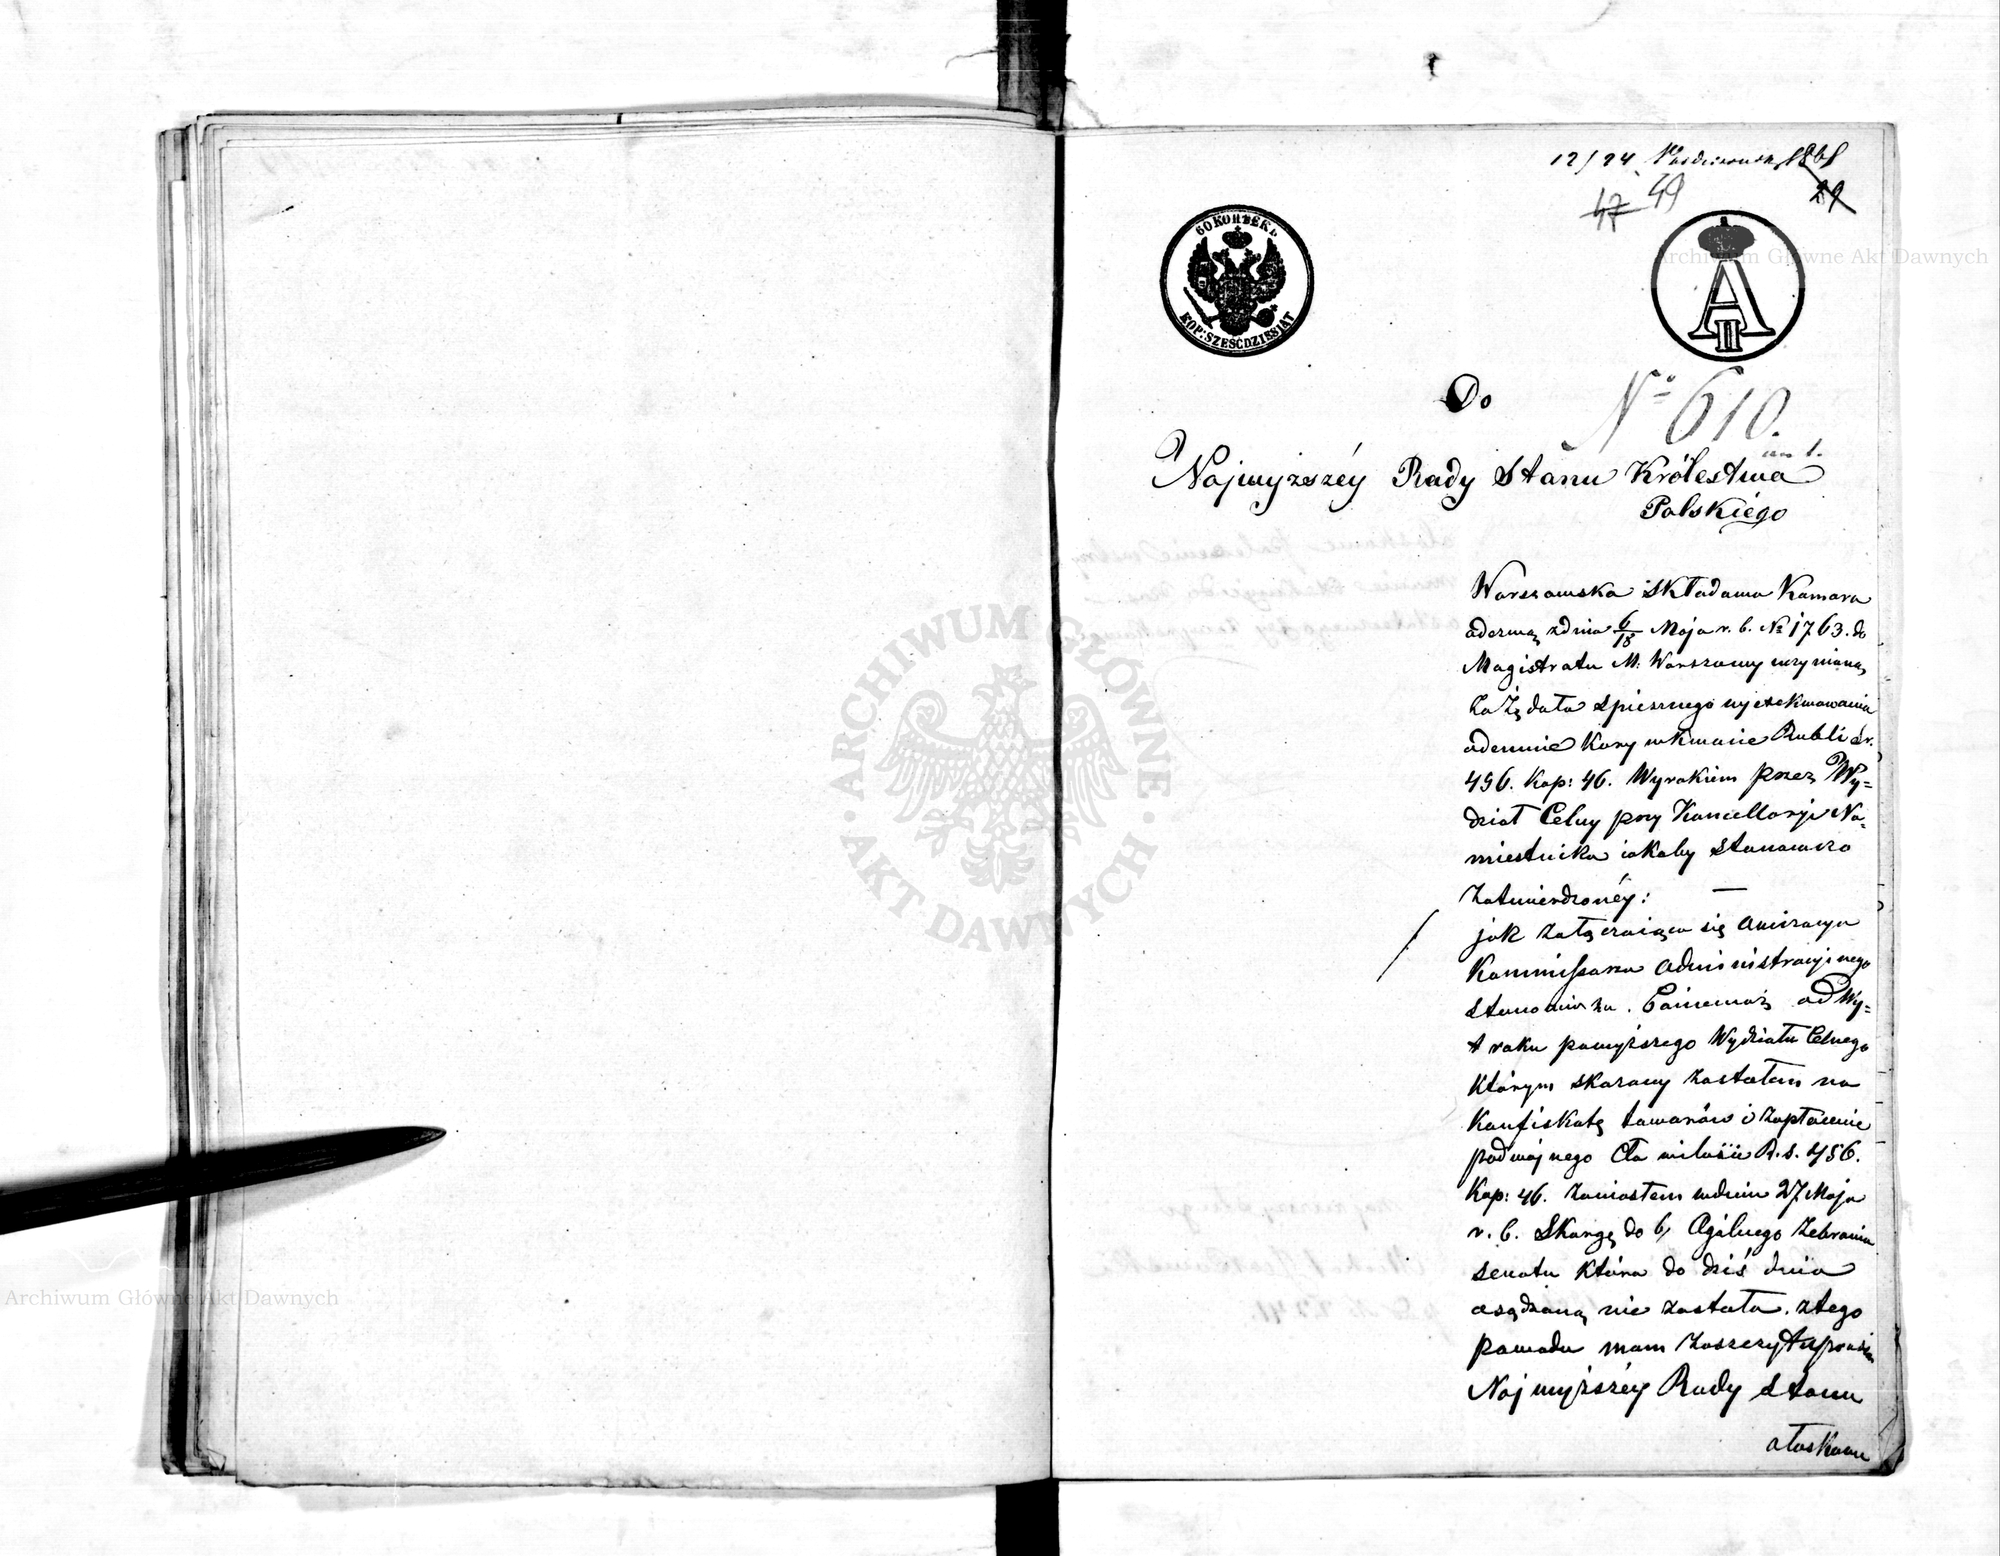 12/24 Października 1861
47 49
29
60 КОПѢЕКЪ
KOP: SZEŚĆDZIESIĄT
A II
Do
№ 610.
an 1.
Najwyższéy Rady Stanu Królestwa
Polskiégo
Warszawska Składowa Kamara
odezwą zdnia 6/18 Maja r. b. № 1763. do
Magistratu M: Warszawy uczynioną
Zażądała Spiesznego wyexekwowania
odemnie Kary w kwocie Rubli sr.
456. Kop: 46. Wyrokiem przez Wy=
dział Celny przy Kancellaryi Na=
miestnika iakoby Stanowczo
Zatwierdzonéy: —
jak załączaiąca się
Kommissarza Administracyinego
Stanowi Ponieważ od Wy=
roku powyższego Wydziału Celnego
którym skazany zostałem na
Konfiskatę towarów i zapłacenie
podwójnego Cła w ilości R. s. 456.
Kop: 46. zaniosłem w dniu 27 Maja
r. b. Skargę do b, Ogólnego Zebrania
Senatu która do dziś dnia
osądzoną nie została. ztego
powodu mam Zaszczyt uprosić
Najwyższéy Rady Stanu
o łaskawe
ARCHIWUM GŁÓWNE · AKT DAWNYCH ·
Archiwum Główne Akt Dawnych
Archiwum Główne Akt Dawnych